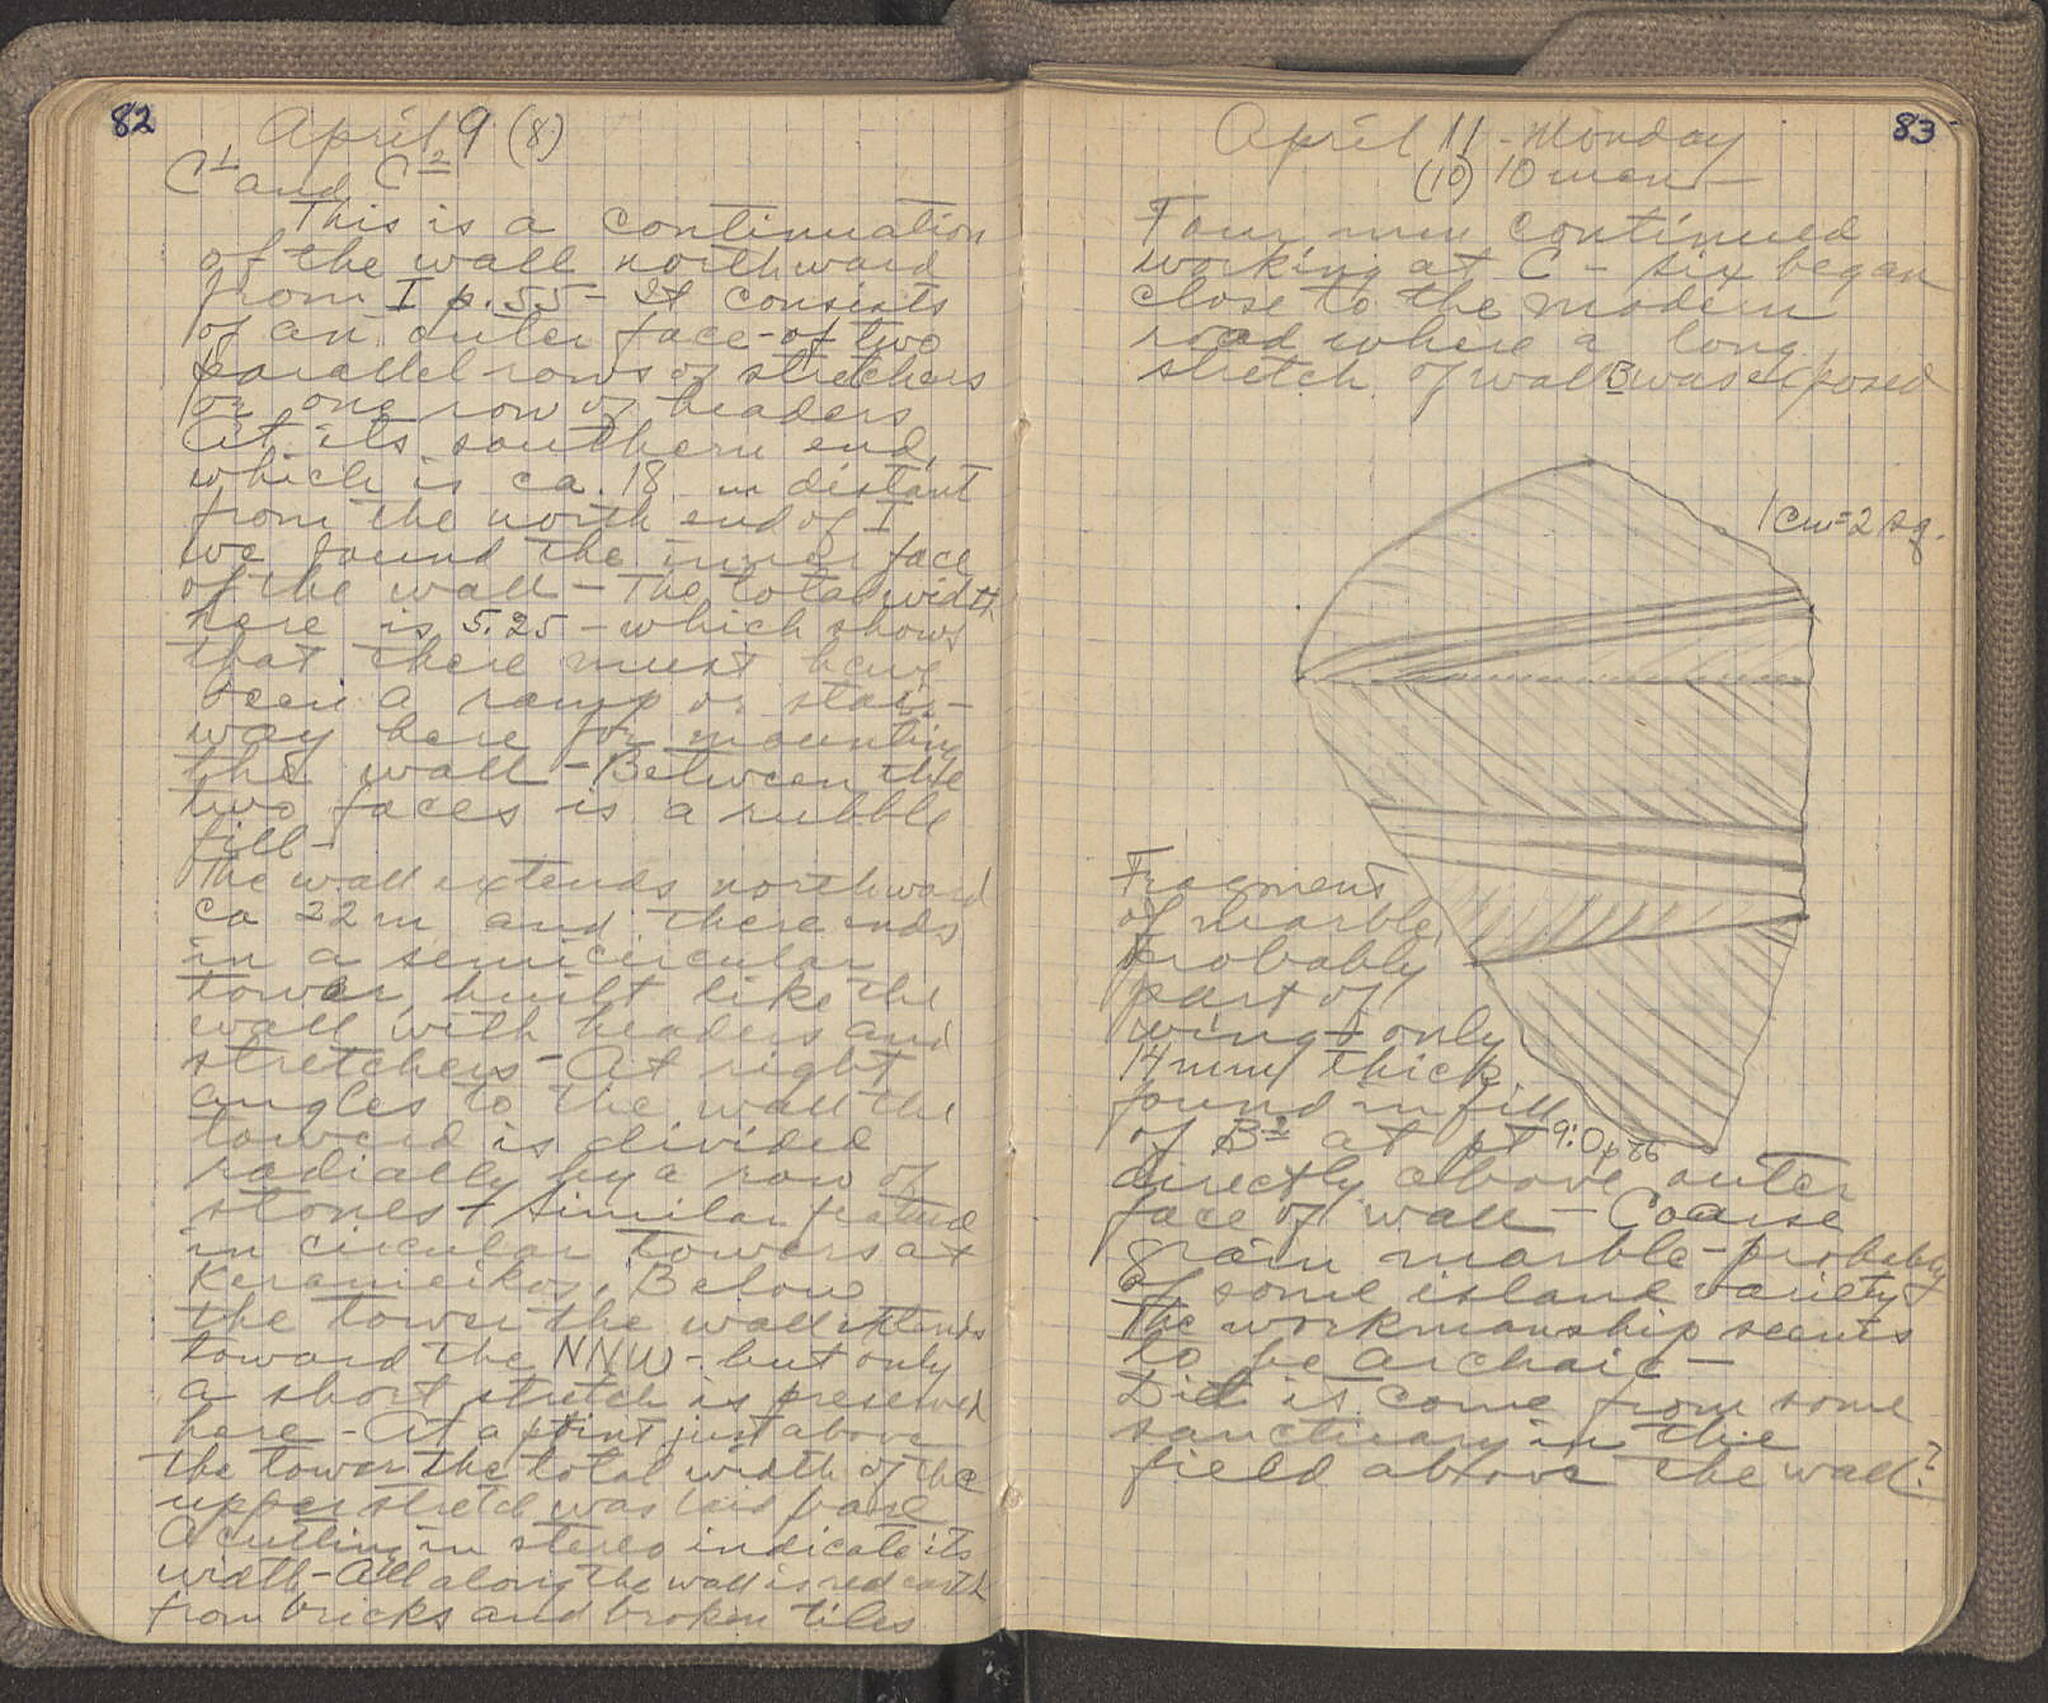 82
April 9 (8)
C1 and C2
This is a continuation
of the wall northward
from I p. 55 - It consists
of an outer face - of two
parallel rows of stretchers
or one row of headers
At its southern end,
which is ca. 18 m distant
from the north end of I
we found the inner face
of the wall - The total width
here is 5.25 - which shows
that there must have
been a ramp or stair-
way here for mounting
the wall - Between the
two faces is a rubble
fill -
The wall extends northward
ca 22 m and there ends
in a semicircular
tower, built like the
wall with headers and
stretchers - At right
angles to the wall the
toward is divided
radially by a row of
stones + similar feature
in circular towers at
Kerameikos. Below
the tower the wall extends
toward the NNW - but only
a short stretch is preserved
here - At a point just above
the tower the total width of the
upper stretch was laid bare
A cutting in stereo indicate its
width - All along the wall is red earth
from bricks and broken tiles
83
April 11 - Monday
(10) 10 men -
Four men continued
working at C - six began
close to the modern
road where a long
stretch of wall B was exposed
1 cm = 2 sq.
Fragment
of marble,
Probably
part of
wing - only
14 mm thick
found in fill
of B2 at pt 9:0 p 76
directly above outer
face of wall - Coarse
grain marble - probably
of some island variety +
The workmanship seems
to be archaic -
Did it come from some
sanctuary in the
field above the wall?